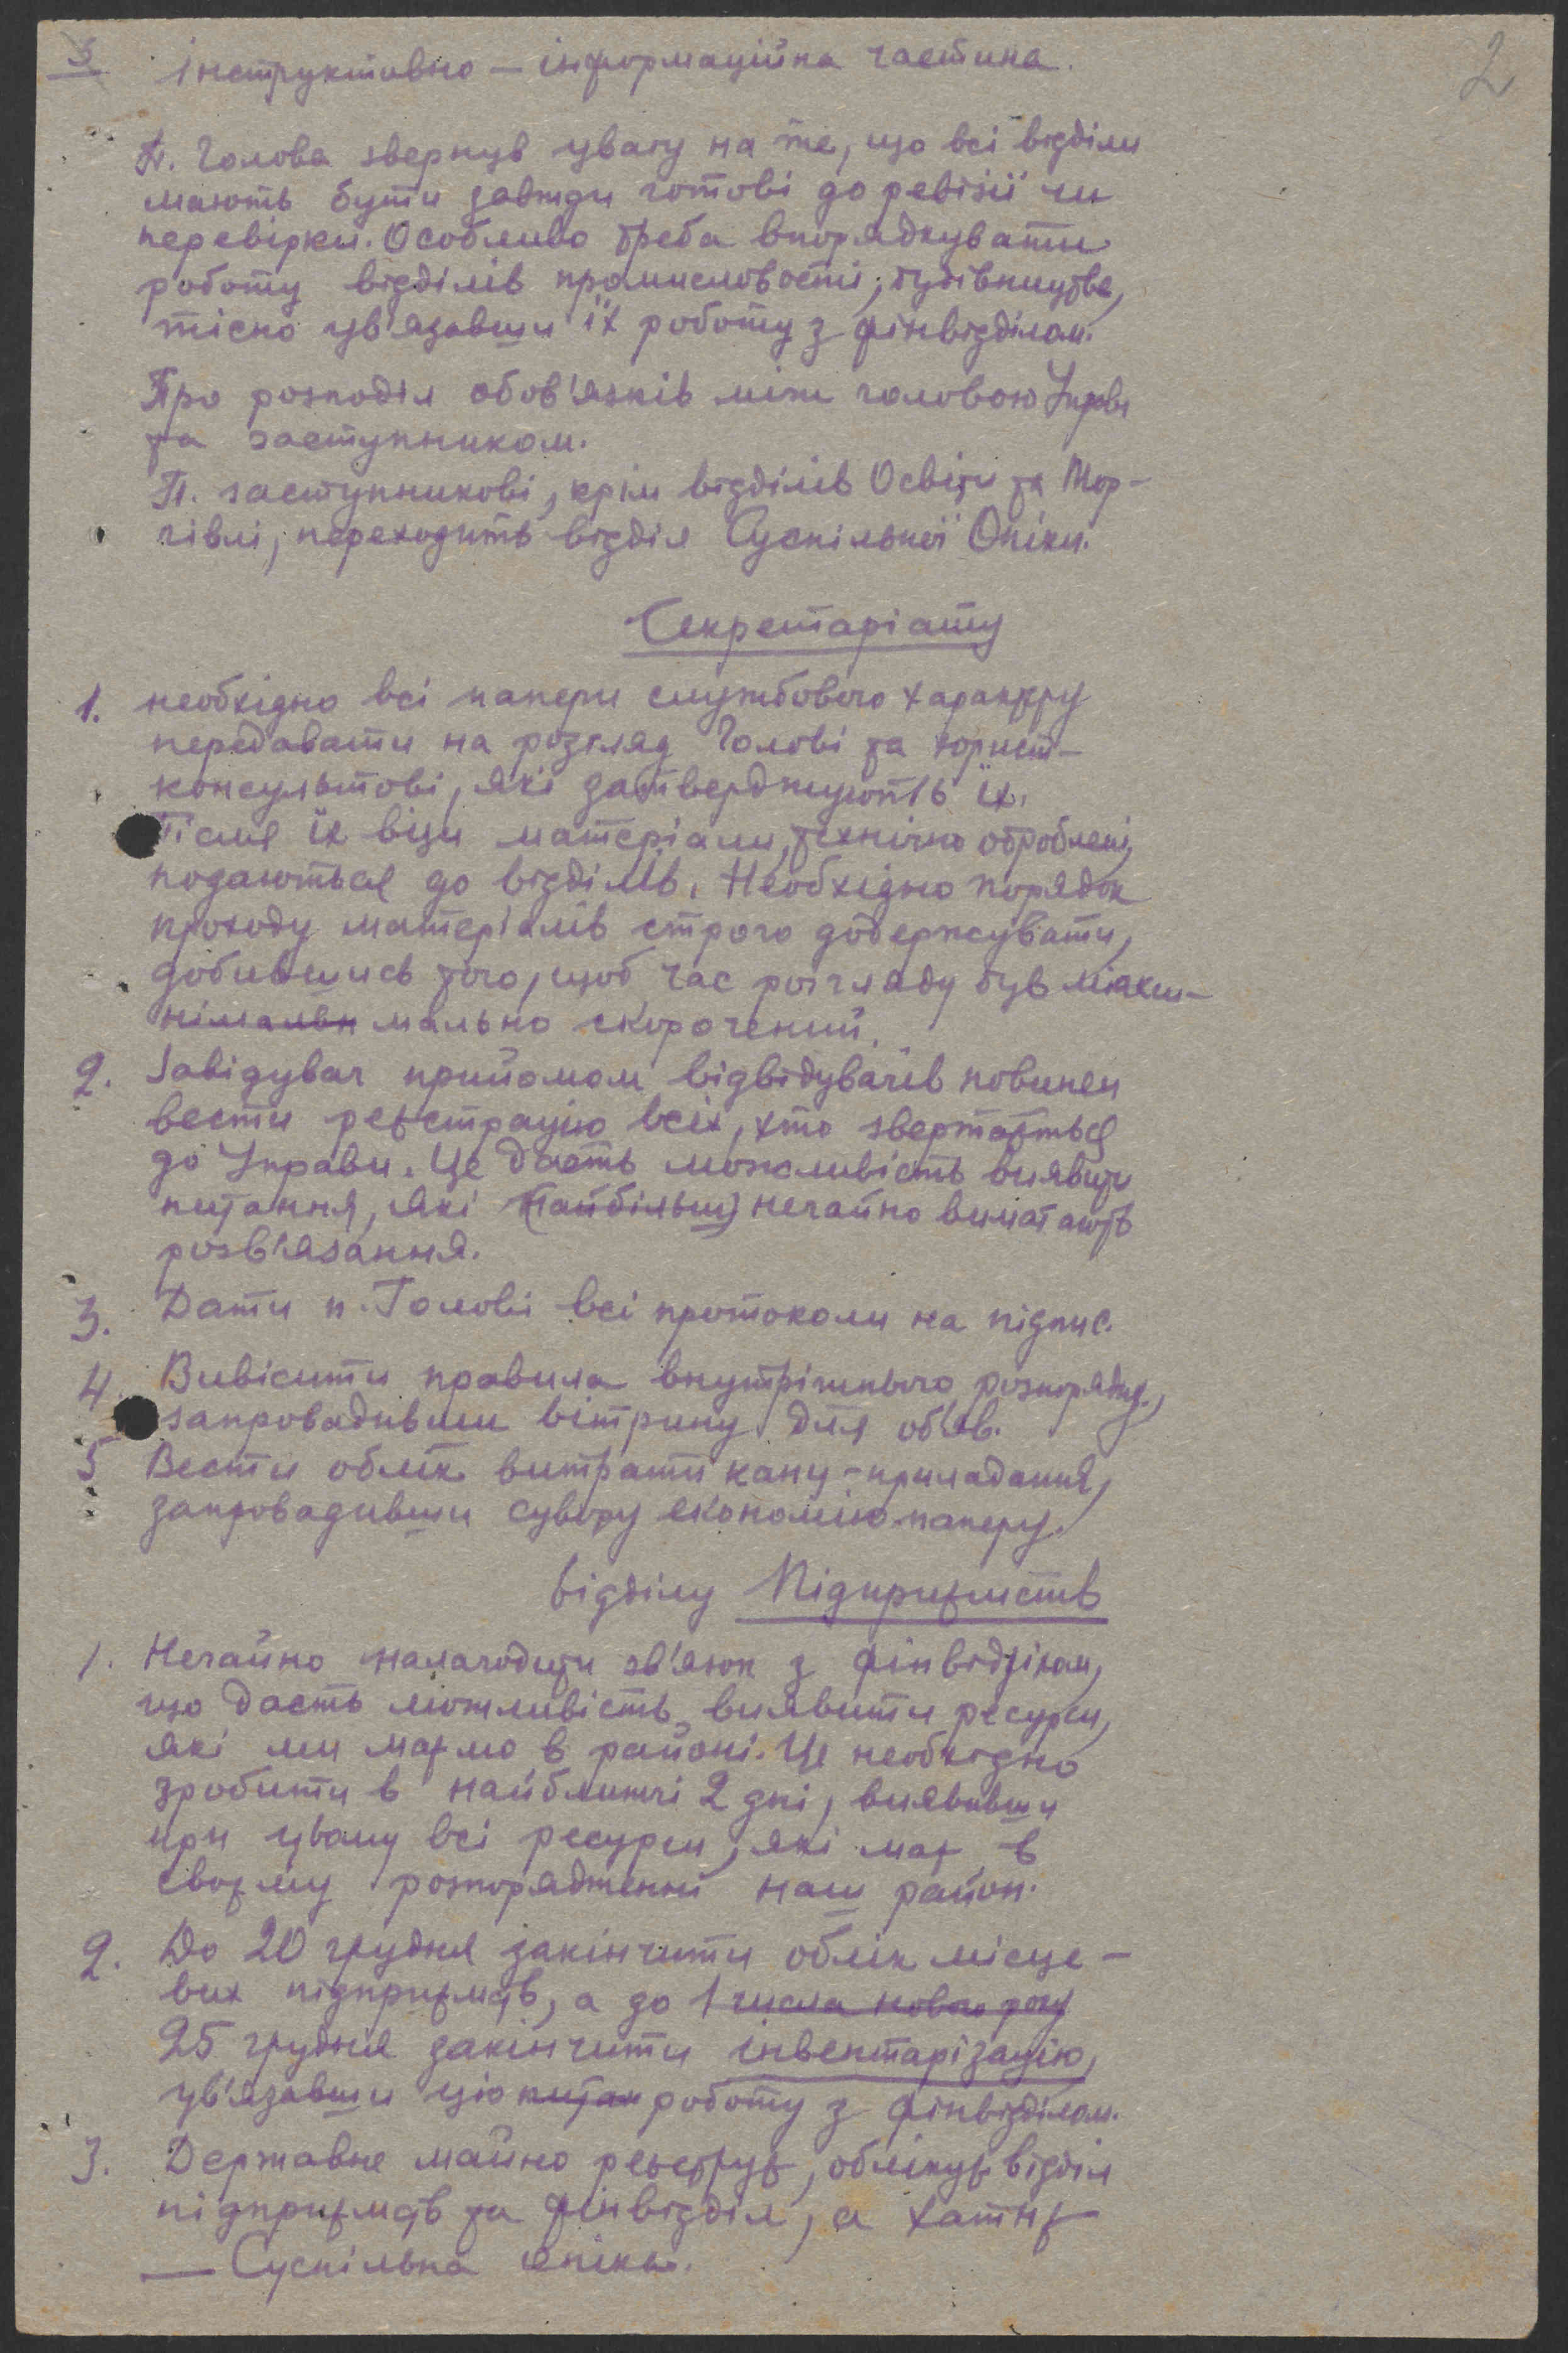 3 Інструктивно – інформаційна частина. 2
П. Голова звернув увагу на те, що всі відділи
мають бути завжди готові до ревізії чи
перевірки. Особливо треба впорядкувати
роботу відділів промисловості, будівництва,
тісно ув'язавши їх роботу з фінвідділом.
Про розподіл обов'язків між головою Управи
та заступником.
П. заступникові, крім відділів Освіти та Тор-
гівлі, переходить відділ Суспільної Опіки.
Секретаріату
1. необхідно всі папери службового характеру
передавати на розгляд Голові та юрист-
консультові, які затверджують їх.
Після їх візи матеріали, технічно оброблені,
подаються до відділів. Необхідно порядок
проходу матеріалів строго додержувати,
добившись того, щоб час розгляду був макси-
німальн мально скорочений.
2. Завідувач прийомом відвідувачів повинен
вести реєстрацію всіх, хто звертається
до Управи. Це дасть можливість виявити
питання, які (найбільш) негайно вимагають
розв'язання.
3. Дати п. Голові всі протоколи на підпис.
4. Вивісити правила внутрішнього розпорядку,
запровадивши вітрину для об'яв.
5 Вести облік витрати канц-приладдання,
запровадивши сувору економію паперу.
Відділу Підприємств
1. Негайно налагодити зв'язок з фінвідділом,
що дасть можливість виявити ресурси,
які ми маємо в районі. Це необхідно
зробити в найближчі 2 дні, виявивши
при цьому всі ресурси, які має в
своєму розпорядженні наш район.
2. До 20 грудня закінчити облік місце-
вих підприємств, а до 1 числа нового року
25 грудня закінчити інвентаризацію,
ув'язавши цю питан роботу з фінвідділом.
3. Державне майно реєструє, облікує відділ
підприємств та фінвідділ, а хатнє
— Суспільна опіка.